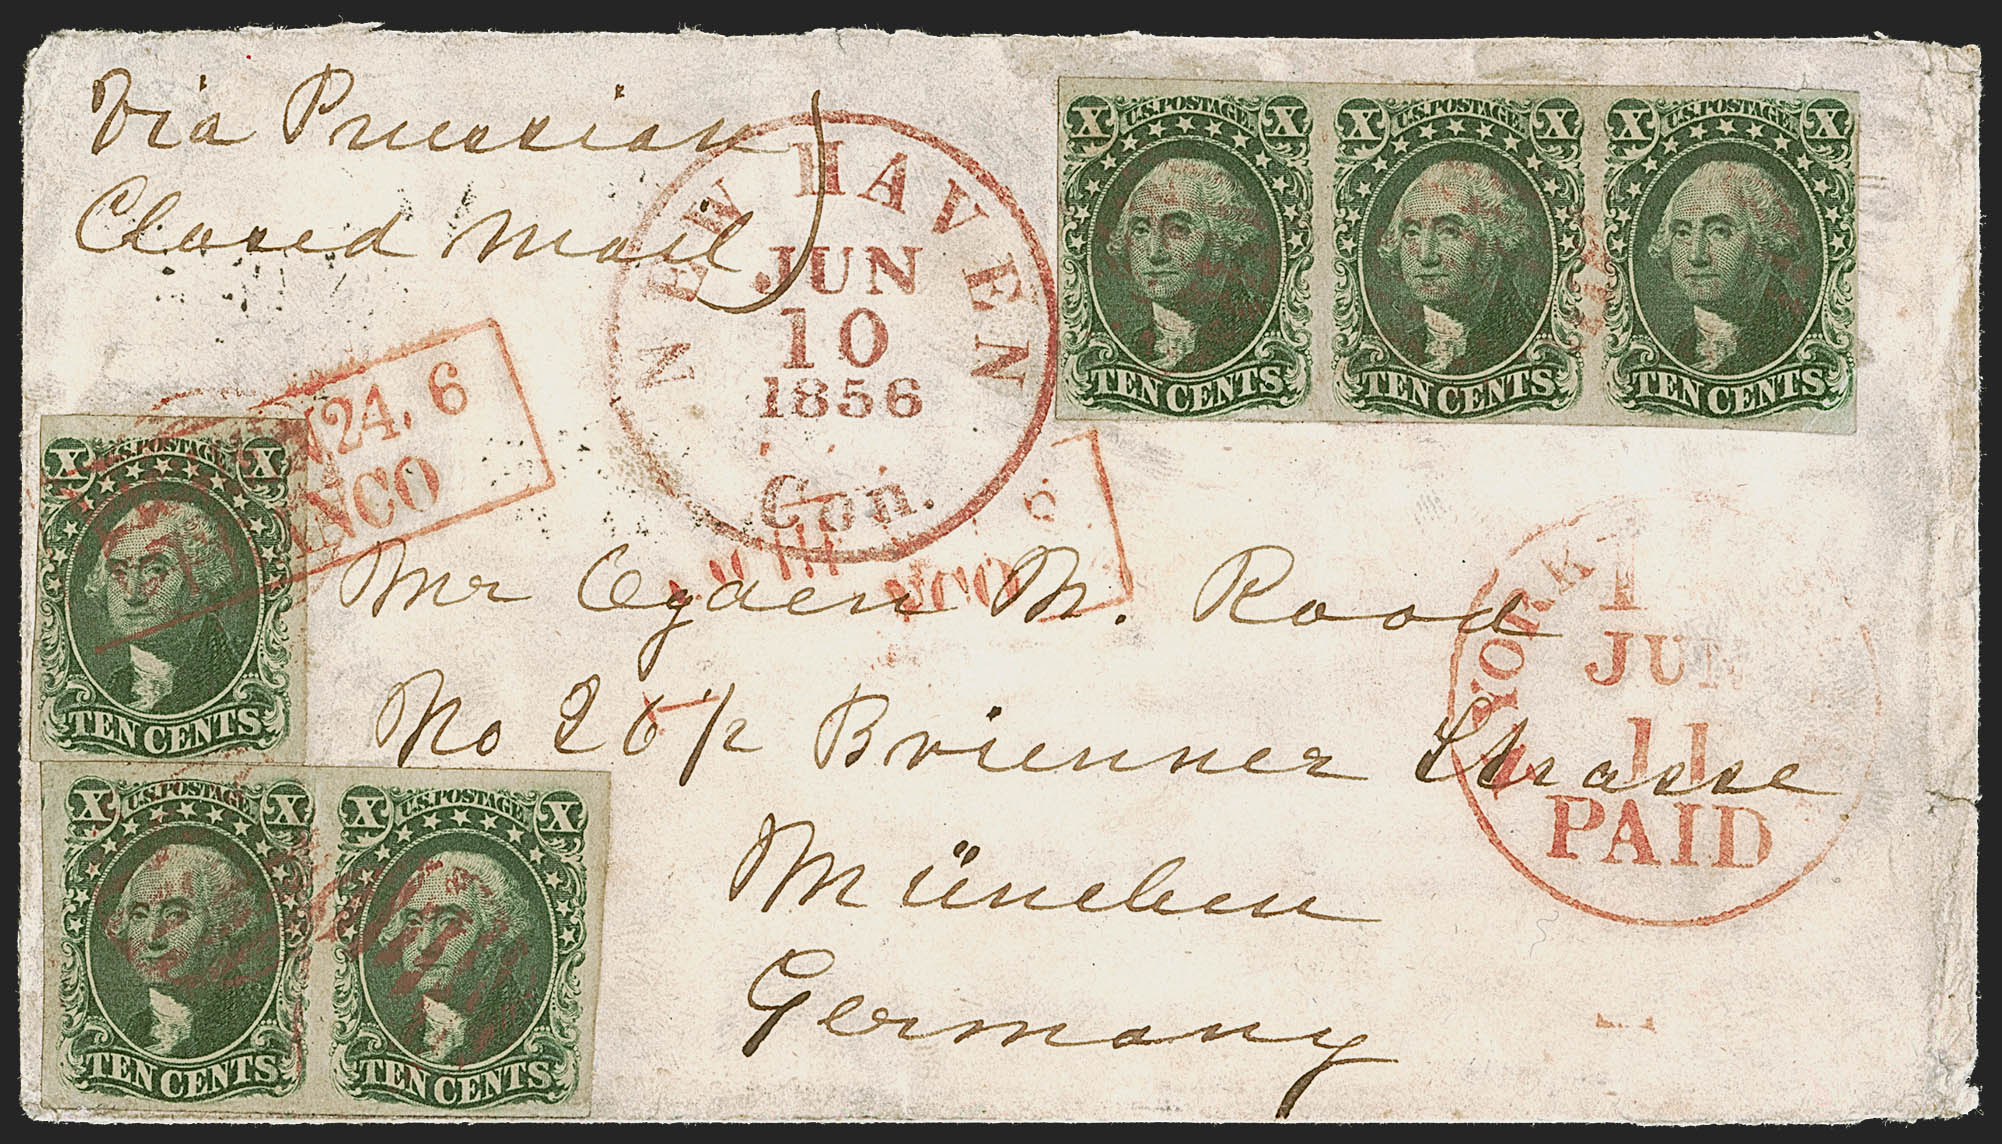 Via Prussian
Closed Mail
NEW HAVEN
JUN
10
1856
Con.
X U.S. POSTAGE X
TEN CENTS
X U.S. POSTAGE X
TEN CENTS
X U.S. POSTAGE X
TEN CENTS
N24. 6
NCO
X U.S. POSTAGE X
TEN CENTS
6
NCO
Mr Ogden N. Rood
No 26½ Brienner Strasse
München
Germany
YORK
1
JUN
11
PAID
X U.S. POSTAGE X
TEN CENTS
X U.S. POSTAGE X
TEN CENTS